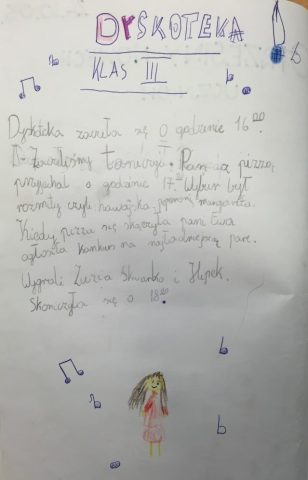 DYSKOTEKA
KLAS III
Dyskoteka zaczeła się o godzinie 16⁰⁰.
Zaczeliśmy tańczyć. Pan z pizzą
przyjechał o godzinie 17. Wybur był
rozmity czyli hawajska, peperoni, margarita.
Kiedy pizza się skączyła pani Ewa
ogłosiła konkurs na najładniejszą pare.
Wygrali Zuzia i
Skończyła się o 18⁰⁰.